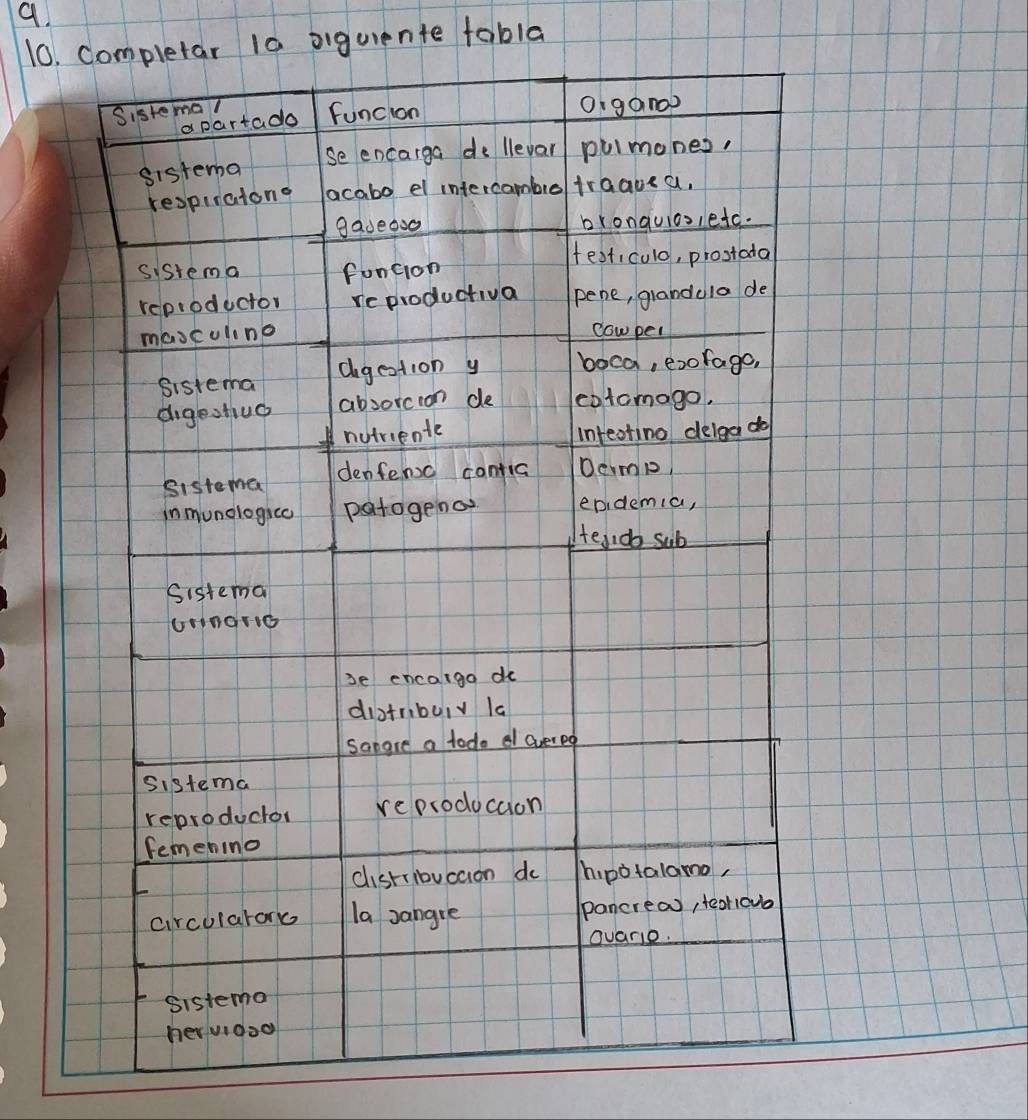 9.
10. Completar la siguiente tabla
Sistema/ apartado
Funcion
Organos
Sistema
respiratorio
Se encarga de llevar
acabo el intercambio
gaseoso
pulmones,
traquea,
bronquios, etc.
Sistema
reproductor
masculino
funcion
reproductiva
testiculo, prostata
pene, glandula de
cowper
Sistema
digestivo
digestion y
absorcion de
nutriente
boca, esofago,
estomago,
intestino delgado
Sistema
inmunologico
denfensa contra
patogenos
Dermis,
epidemia,
tejido sub
Sistema
urinario
se encarga de
distribuir la
sangre a todo el cuerpo
Sistema
reproductor
femenino
reproduccion
circulatorio
distribuccion de
la sangre
hipotalamo,
pancreas, testiculo
ovario.
Sistema
nervioso